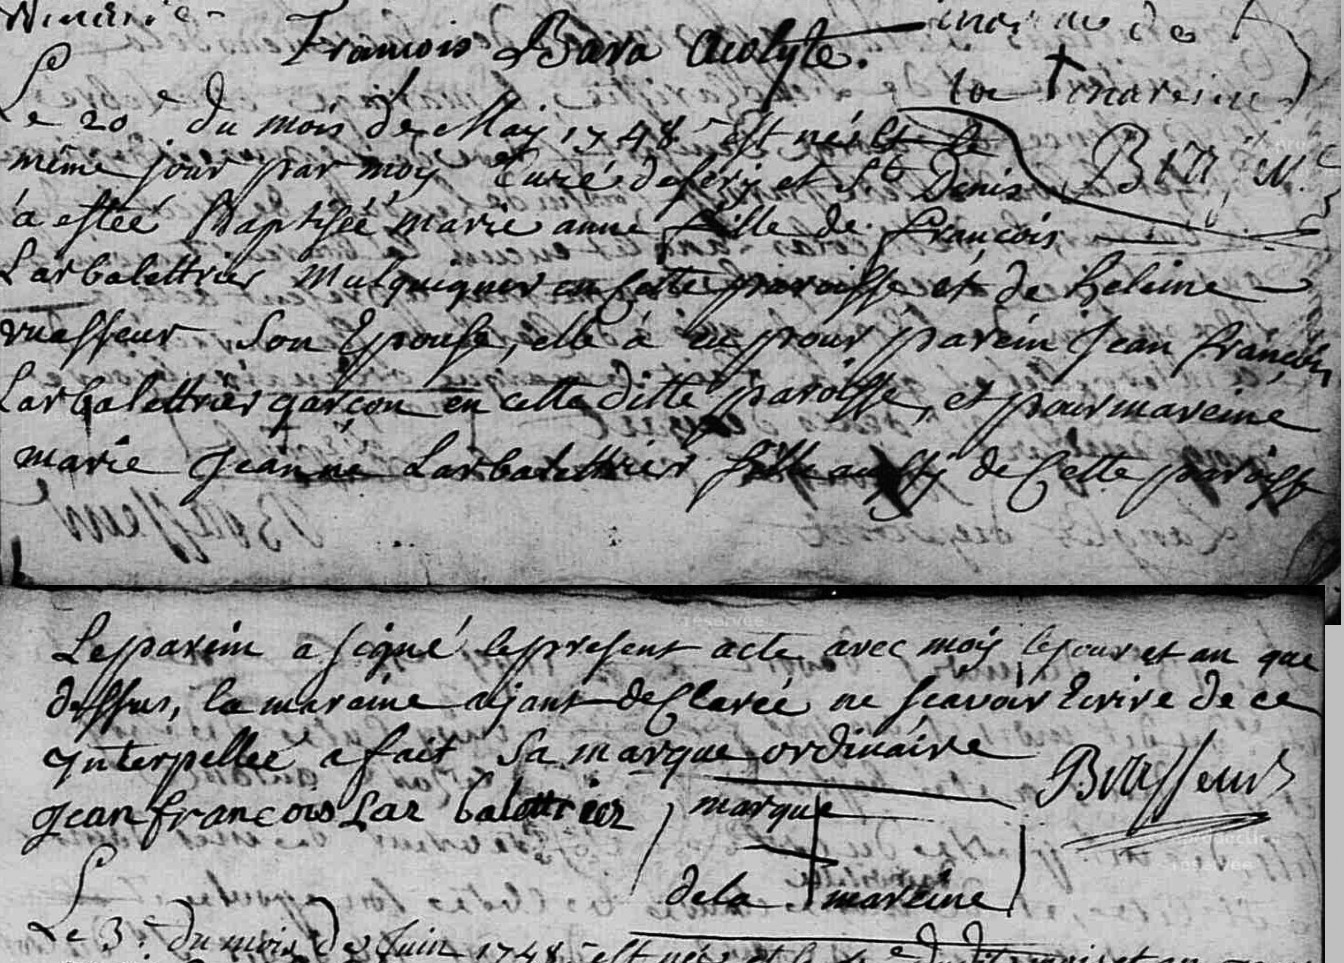 François Bara acolyte.
la mareine
Le 20e du mois de May 1748 Est née et le
même jour par moy Curé de séry et St Denis
à estée Baptisée marie anne fille de François
Larbalettrier Mulquiquier en cette paroisse et de heleine
vuasseur Son Epouse, elle à eu pour parein Jean François
Larbalettrier garçon en cette ditte paroisse, et pour mareine
marie Jeanne Larbalettrier fille aussy de Cette paroisse
Le parein a signé le present acte avec moy les jour et an que
dessus, la mareine aÿant declareé ne scavoir Ecrire de ce
ynterpelleé a fait Sa marque ordinaire
Brasseur
jean francois Lar balettrier
marque
de la mareine
Le 3e du mois de Juin 1748 est née et le